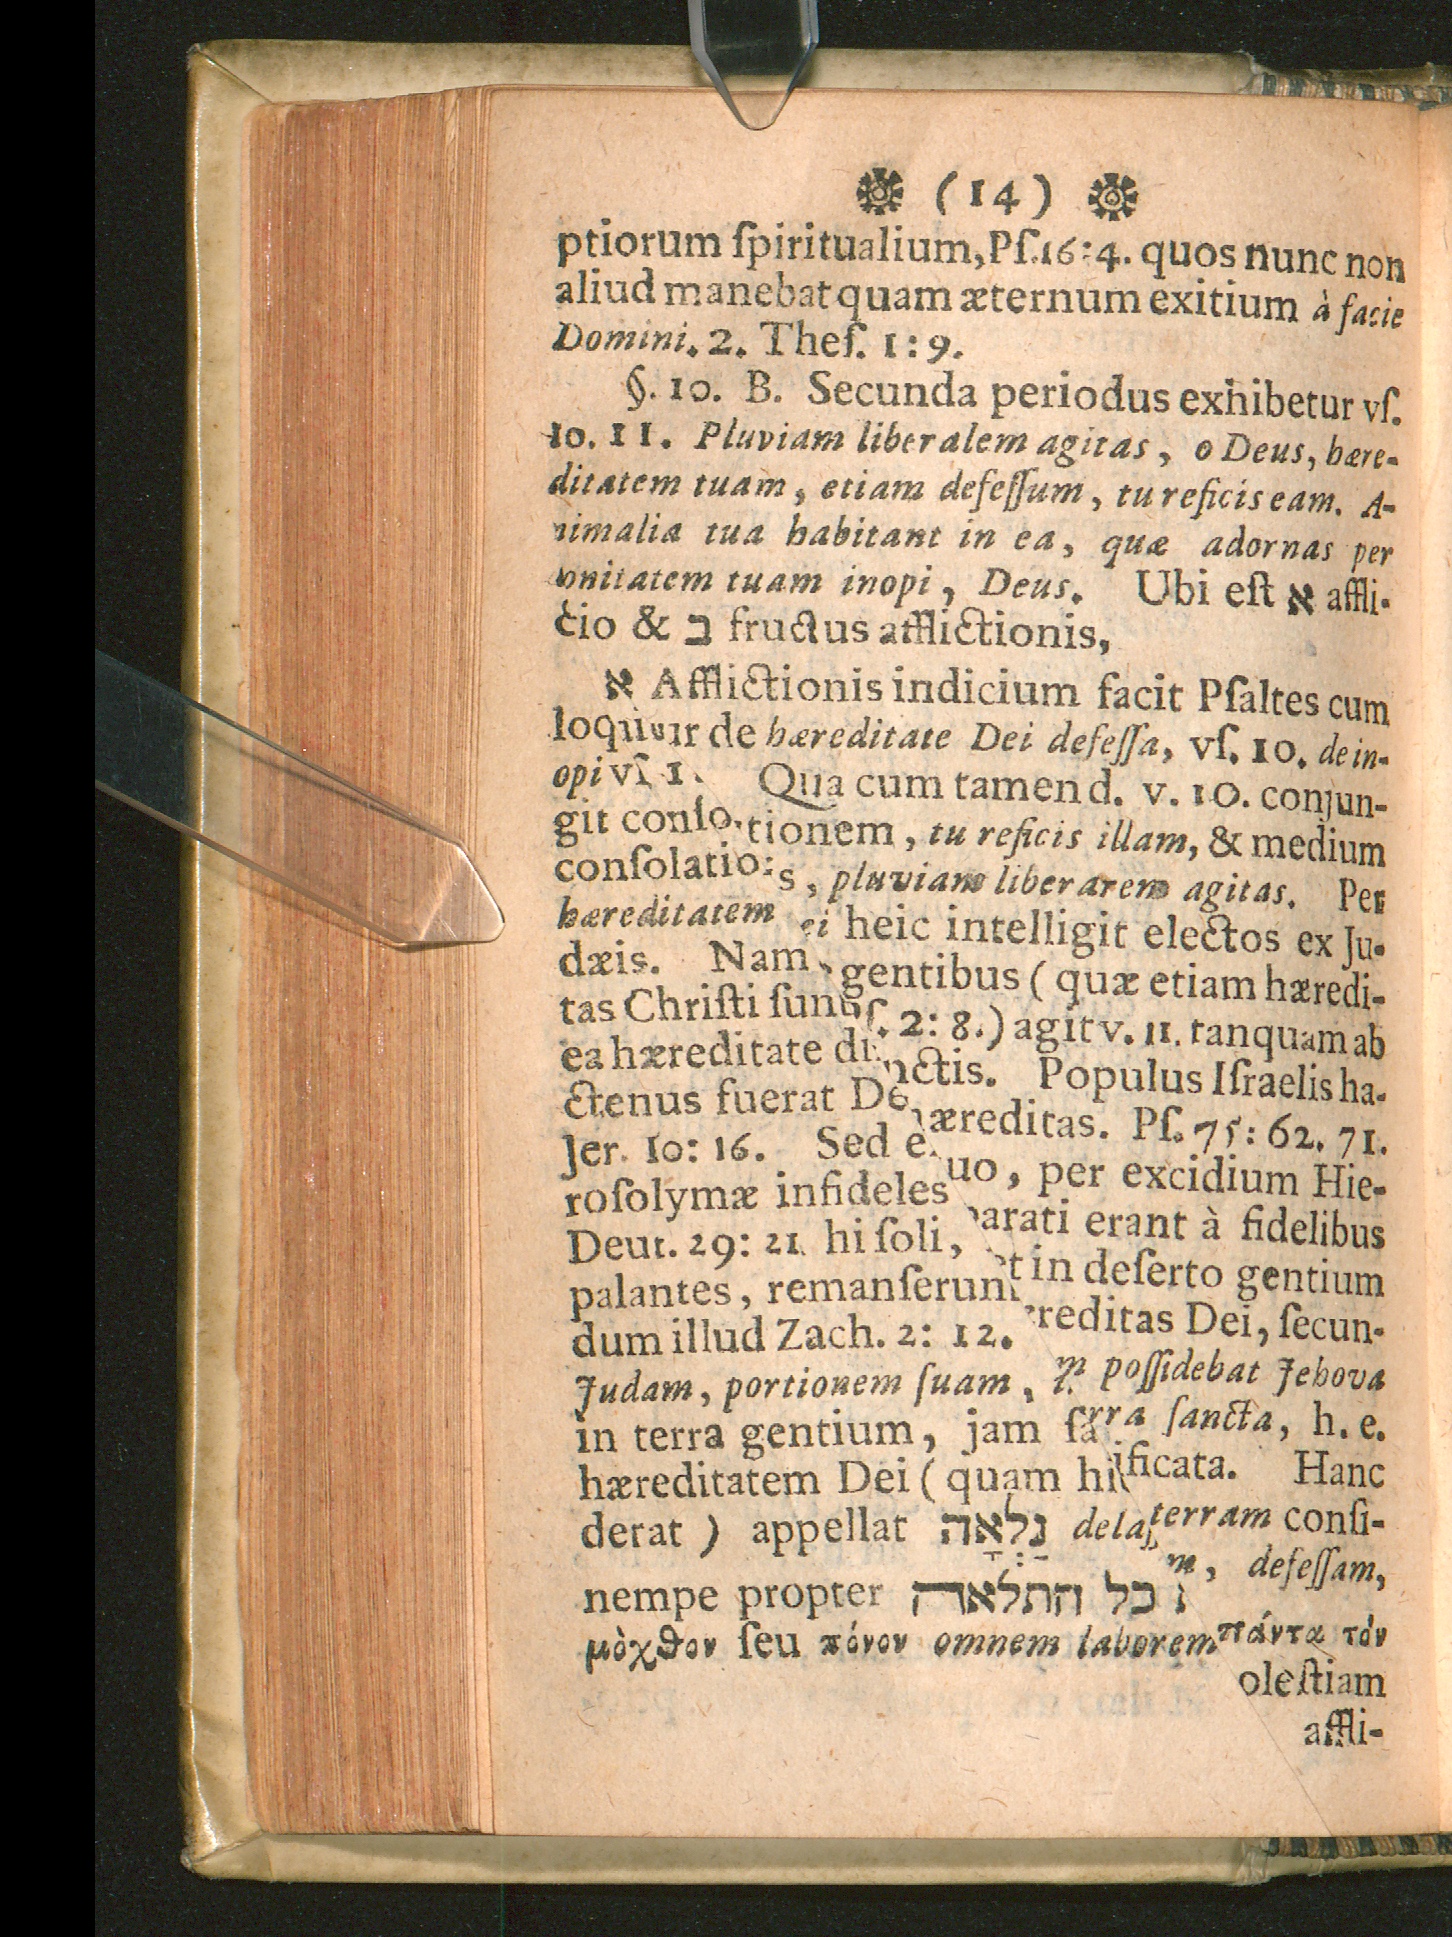 (14)
ptiorum ſpiritualium, Pſ. 16:4. quos nunc non
aliud manebat quam æternum exitium à facie
Domini. 2. Theſ. 1:9.
§. 10. B. Secunda periodus exhibetur vſ.
10. 11. Pluviam liberalem agitas, o Deus, hære-
ditatem tuam, etiam defeſſum, tu reficis eam. A-
nimalia tua habitant in ea, quæ adornas per
onitatem tuam inopi, Deus. Ubi eſt א affli-
ctio & ב fructus afflictionis,
א Afflictionis indicium facit Pſaltes cum
loquitur de hæreditate Dei defeſſa, vſ. 10. de in-
opi vſ 1. Qua cum tamen d. v. 10. conjun-
git conſo tionem, tu reficis illam, & medium
conſolatio s, pluviam liberarem agitas. Per
hæreditatem ei heic intelligit electos ex Ju-
dæis. Nam gentibus (quæ etiam hæredi-
tas Chriſti ſunt ſ. 2: 8.) agit v. 11. tanquam ab
ea hæreditate di nctis. Populus Iſraelis ha-
ctenus fuerat De hæreditas. Pſ. 75: 62. 71.
Jer. 10: 16. Sed e uo, per excidium Hie-
roſolymæ infideles parati erant à fidelibus
Deut. 29: 21 hi ſoli, et in deſerto gentium
palantes, remanſerunt ereditas Dei, ſecun-
dum illud Zach. 2: 12. m poſſidebat Jehova
Judam, portionem ſuam, i rra ſancta, h. e.
in terra gentium, jam ſa ificata. Hanc
hæreditatem Dei (quam hi terram conſi-
derat) appellat נִלְאָה delaſ m, defeſſam,
nempe propter כל התלאה πάντα τὸν
μὸχθον ſeu πόνον omnem laborem oleſtiam
affli-